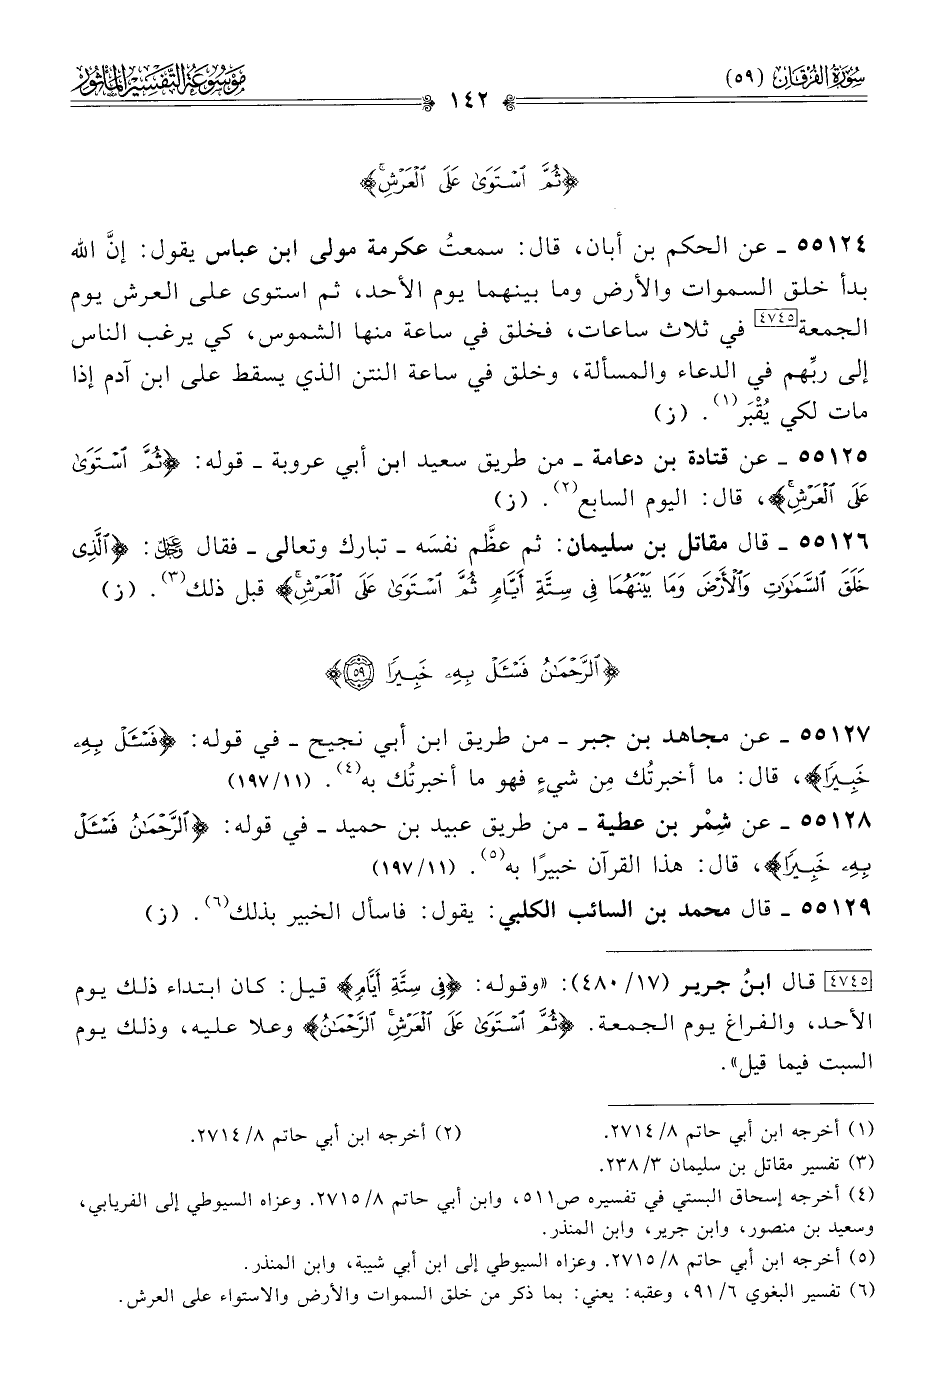 سورة الفرقان (٥٩)
١٤٢
موسوعة التفسير المأثور
﴿ثُمَّ ٱسْتَوَىٰ عَلَى ٱلْعَرْشِۚ﴾
٥٥١٢٤ ـ عن الحكم بن أبان، قال: سمعتُ عكرمة مولى ابن عباس يقول: إنَّ الله
بدأ خلق السموات والأرض وما بينهما يوم الأحد، ثم استوى على العرش يوم
الجمعة[٤٧٤٥] في ثلاث ساعات، فخلق في ساعة منها الشموس، كي يرغب الناس
إلى ربِّهم في الدعاء والمسألة، وخلق في ساعة النتن الذي يسقط على ابن آدم إذا
مات لكي يُقْبَر(١). (ز)
٥٥١٢٥ ـ عن قتادة بن دعامة ـ من طريق سعيد ابن أبي عروبة ـ قوله: ﴿ثُمَّ ٱسْتَوَىٰ
عَلَى ٱلْعَرْشِۚ﴾، قال: اليوم السابع(٢). (ز)
٥٥١٢٦ ـ قال مقاتل بن سليمان: ثم عظَّم نفسَه ـ تبارك وتعالى ـ فقال ﷿: ﴿ٱلَّذِى
خَلَقَ ٱلسَّمَٰوَٰتِ وَٱلْأَرْضَ وَمَا بَيْنَهُمَا فِى سِتَّةِ أَيَّامٍ ثُمَّ ٱسْتَوَىٰ عَلَى ٱلْعَرْشِۚ﴾ قبل ذلك(٣). (ز)
﴿ٱلرَّحْمَٰنُ فَسْـَٔلْ بِهِۦ خَبِيرًا ٥٩﴾
٥٥١٢٧ ـ عن مجاهد بن جبر ـ من طريق ابن أبي نجيح ـ في قوله: ﴿فَسْـَٔلْ بِهِۦ
خَبِيرًا﴾، قال: ما أخبرتُك مِن شيءٍ فهو ما أخبرتُك به(٤). (١١/ ١٩٧)
٥٥١٢٨ ـ عن شِمْر بن عطية ـ من طريق عبيد بن حميد ـ في قوله: ﴿ٱلرَّحْمَٰنُ فَسْـَٔلْ
بِهِۦ خَبِيرًا﴾، قال: هذا القرآن خبيرًا به(٥). (١١/ ١٩٧)
٥٥١٢٩ ـ قال محمد بن السائب الكلبي: يقول: فاسأل الخبير بذلك(٦). (ز)
[٤٧٤٥] قال ابنُ جرير (١٧/ ٤٨٠): «وقوله: ﴿فِى سِتَّةِ أَيَّامٍ﴾ قيل: كان ابتداء ذلك يوم
الأحد، والفراغ يوم الجمعة. ﴿ثُمَّ ٱسْتَوَىٰ عَلَى ٱلْعَرْشِۚ ٱلرَّحْمَٰنُ﴾ وعلا عليه، وذلك يوم
السبت فيما قيل».
(١) أخرجه ابن أبي حاتم ٨/ ٢٧١٤. (٢) أخرجه ابن أبي حاتم ٨/ ٢٧١٤.
(٣) تفسير مقاتل بن سليمان ٣/ ٢٣٨.
(٤) أخرجه إسحاق البستي في تفسيره ص٥١١، وابن أبي حاتم ٨/ ٢٧١٥. وعزاه السيوطي إلى الفريابي،
وسعيد بن منصور، وابن جرير، وابن المنذر.
(٥) أخرجه ابن أبي حاتم ٨/ ٢٧١٥. وعزاه السيوطي إلى ابن أبي شيبة، وابن المنذر.
(٦) تفسير البغوي ٦/ ٩١، وعقبه: يعني: بما ذكر من خلق السموات والأرض والاستواء على العرش.